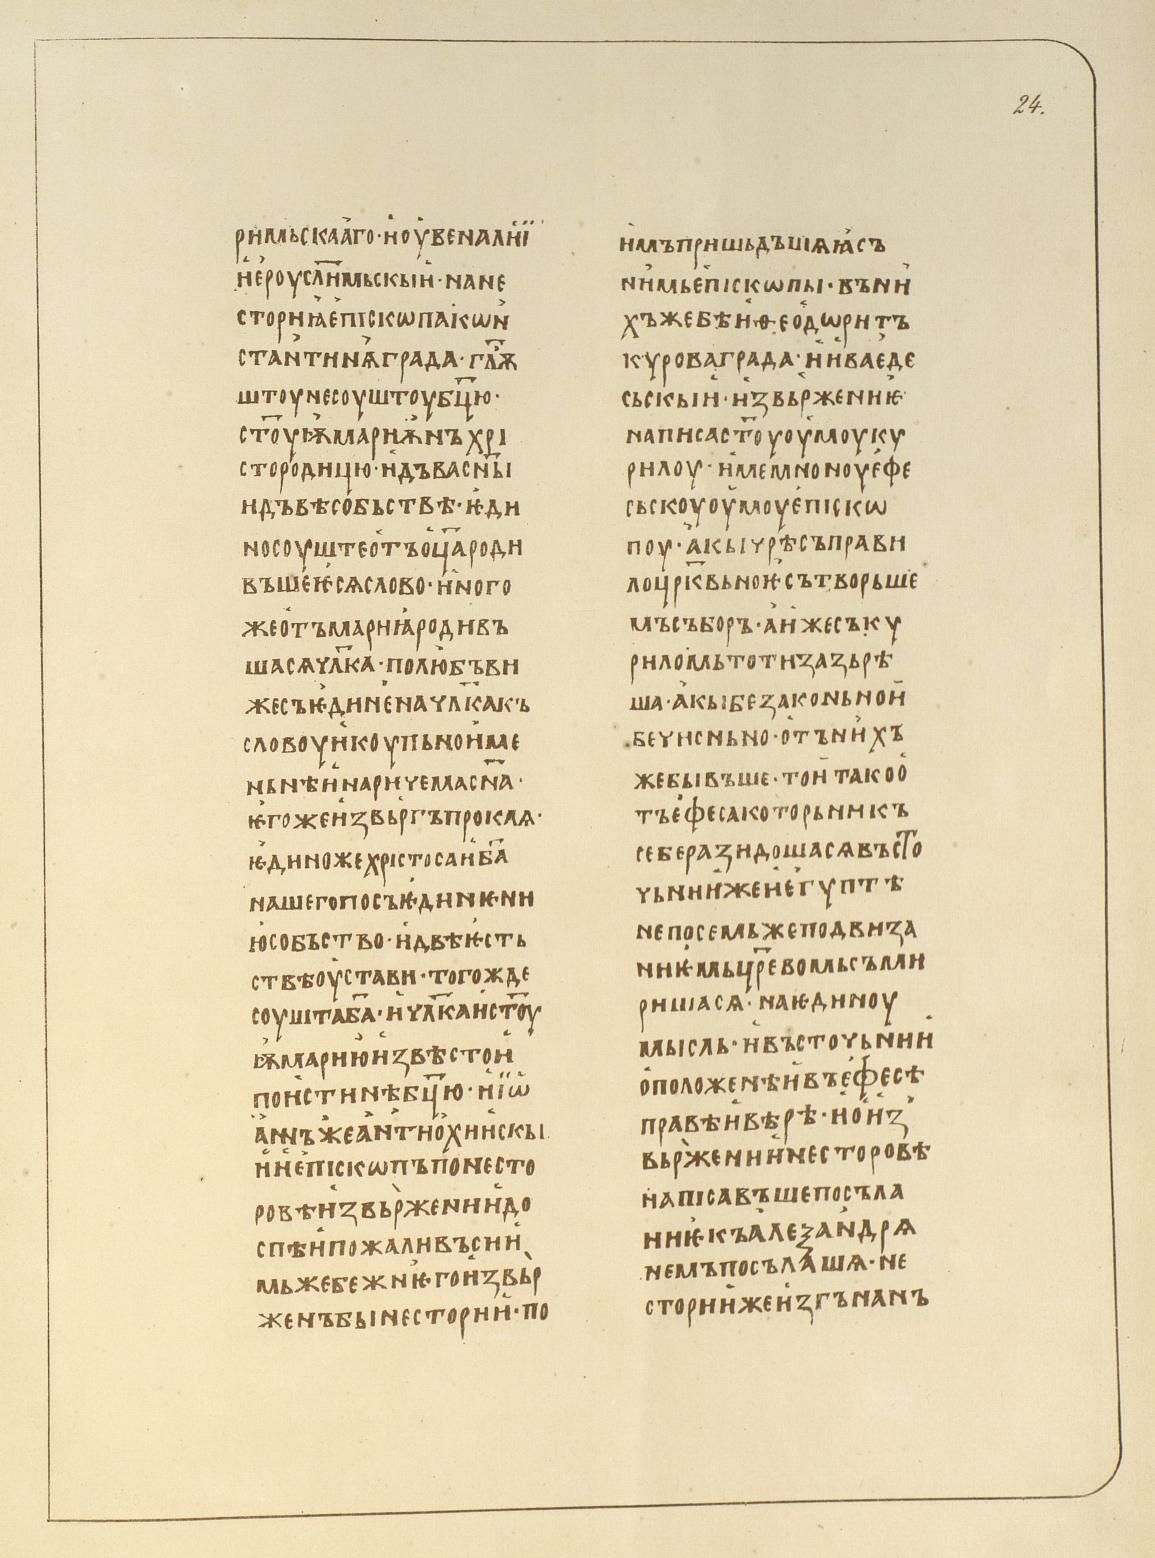 24.
римьскааго·ноувеналиї
иероусл҃имьскыи·нане
сториꙗепископакон
стантинѧграда·гл҃ѭ
штоунесоуштоубц҃ю·
ст҃оуѭмариѭнъхрі
стородицю·идъвасн҃ы
идъвѣсобьствѣ·ѥди
носоуштеотъоц҃ароди
въшеѥсѧслово·иного
жеотъмариꙗродивъ
шасѧчл҃ка·полюбъви
жесъѥдиненачл҃какъ
словоуикоупьноиме
ньнѣинаричемасн҃а·
ѥгожеизвьргъпроклѧ·
ѥдиножехрістосаиб҃а
нашегопосъѥдинѥни
юсобьство·идвѣѥсть
ствѣоустави·тогожде
соуштаб҃а·ичл҃каист҃оу
ѭмариюизвѣстои
поистинѣбц҃ю·иіѡ
аннъжеантиохиискы
ииепіскѡпъпонесто
ровѣизвьржениидо
спѣипожаливъсии
мьжебежнѥгоизвьр
женъбынестории·по
имъпришьдъшѧꙗсъ
нимьепіскѡпы·въни
хъжебѣиѳеодѡритъ
куроваграда·ииваеде
сьскыи·извьржениѥ
написаст҃оуоумоуку
рилоу·имемноноуефе
сьскоуоумоуепіскѡ
поу·акычрѣсъправи
лоцр҃квьноѥсътворьше
мъсъборъ·аижесъку
риломьтотизазьрѣ
ша·акыбезаконьнои
бечисньно·отънихъ
жебывъше·тоитакоо
тъефесакоторьникъ
себеразидошасѧвъст҃о
чьниижеиегуптѣ
непосемьжеподвиза
ниѥмьцр҃евомьсъми
ришасѧ·наѥдиноу
мысль·ивъсточьнии
оположенѣивъефесѣ
правѣивѣрѣ·иоиз
вьрженииинесторовѣ
написавъшепосъла
ниѥкъалезандрѧ
немъпосълашѧ·не
сториижеизгънанъ